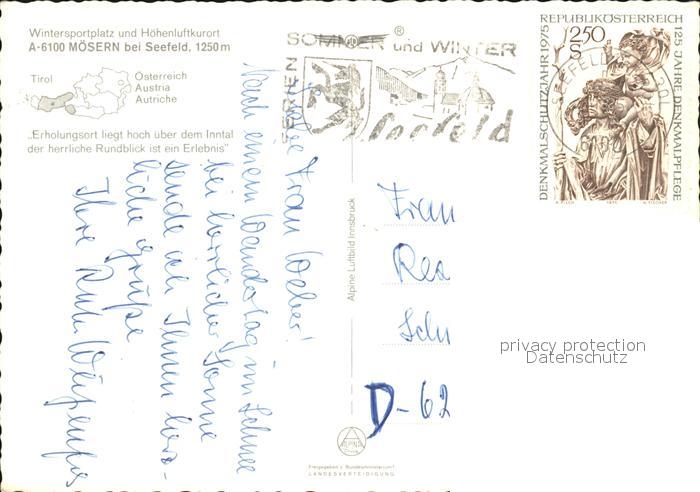 Wintersportplatz und Höhenluftkurort
A-6100 MÖSERN bei Seefeld, 1250 m
Tirol
Österreich
Austria
Autriche
„Erholungsort liegt hoch über dem Inntal
der herrliche Rundblick ist ein Erlebnis"
SOMMER und WINTER
®
FERIEN
Seefeld
REPUBLIK ÖSTERREICH
2.50
S
DENKMALSCHUTZJAHR 1975
125 JAHRE DENKMALPFLEGE
SEEFELD
A. PILCH 1975 A. FISCHER
Liebe Frau Weber!
Nach einem Wandertag im Schnee
bei herrlicher Sonne
sende ich Ihnen herz-
liche Grüße
Ihre Ruth
Alpine Luftbild Innsbruck
Frau
Rea
Sch
D-62
privacy protection
Datenschutz
ALPINE
Freigegeben v. Bundesministerium f.
LANDESVERTEIDIGUNG